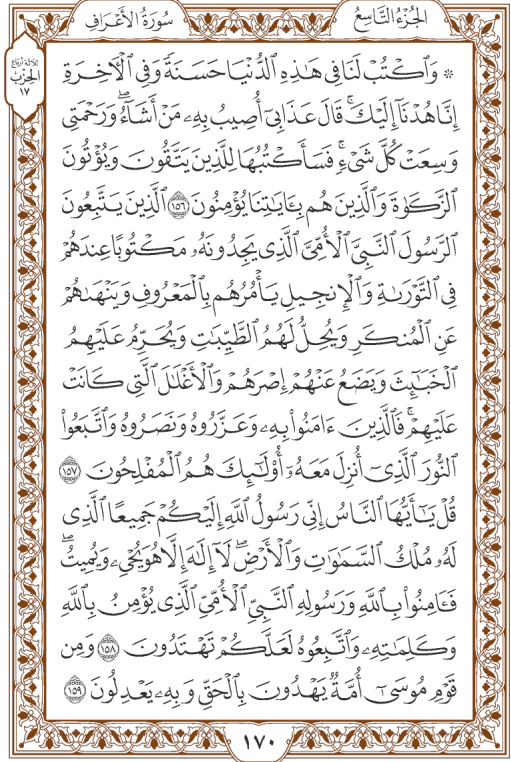 الجُزْءُ التَّاسِعُ
سُورَةُ الأَعْرَافِ
ثلاثة أرباع
الحِزْب
١٧
۞ وَٱكْتُبْ لَنَا فِي هَٰذِهِ ٱلدُّنْيَا حَسَنَةً وَفِي ٱلْأٓخِرَةِ
إِنَّا هُدْنَآ إِلَيْكَۚ قَالَ عَذَابِيٓ أُصِيبُ بِهِۦ مَنْ أَشَآءُۖ وَرَحْمَتِي
وَسِعَتْ كُلَّ شَيْءٍۚ فَسَأَكْتُبُهَا لِلَّذِينَ يَتَّقُونَ وَيُؤْتُونَ
ٱلزَّكَوٰةَ وَٱلَّذِينَ هُم بِـَٔايَٰتِنَا يُؤْمِنُونَ ١٥٦ ٱلَّذِينَ يَتَّبِعُونَ
ٱلرَّسُولَ ٱلنَّبِيَّ ٱلْأُمِّيَّ ٱلَّذِي يَجِدُونَهُۥ مَكْتُوبًا عِندَهُمْ
فِي ٱلتَّوْرَىٰةِ وَٱلْإِنجِيلِ يَأْمُرُهُم بِٱلْمَعْرُوفِ وَيَنْهَىٰهُمْ
عَنِ ٱلْمُنكَرِ وَيُحِلُّ لَهُمُ ٱلطَّيِّبَٰتِ وَيُحَرِّمُ عَلَيْهِمُ
ٱلْخَبَٰٓئِثَ وَيَضَعُ عَنْهُمْ إِصْرَهُمْ وَٱلْأَغْلَٰلَ ٱلَّتِي كَانَتْ
عَلَيْهِمْۚ فَٱلَّذِينَ ءَامَنُوا۟ بِهِۦ وَعَزَّرُوهُ وَنَصَرُوهُ وَٱتَّبَعُوا۟
ٱلنُّورَ ٱلَّذِيٓ أُنزِلَ مَعَهُۥٓ أُو۟لَٰٓئِكَ هُمُ ٱلْمُفْلِحُونَ ١٥٧
قُلْ يَٰٓأَيُّهَا ٱلنَّاسُ إِنِّي رَسُولُ ٱللَّهِ إِلَيْكُمْ جَمِيعًا ٱلَّذِي
لَهُۥ مُلْكُ ٱلسَّمَٰوَٰتِ وَٱلْأَرْضِۖ لَآ إِلَٰهَ إِلَّا هُوَ يُحْيِۦ وَيُمِيتُۖ
فَـَٔامِنُوا۟ بِٱللَّهِ وَرَسُولِهِ ٱلنَّبِيِّ ٱلْأُمِّيِّ ٱلَّذِي يُؤْمِنُ بِٱللَّهِ
وَكَلِمَٰتِهِۦ وَٱتَّبِعُوهُ لَعَلَّكُمْ تَهْتَدُونَ ١٥٨ وَمِن
قَوْمِ مُوسَىٰٓ أُمَّةٌ يَهْدُونَ بِٱلْحَقِّ وَبِهِۦ يَعْدِلُونَ ١٥٩
١٧٠